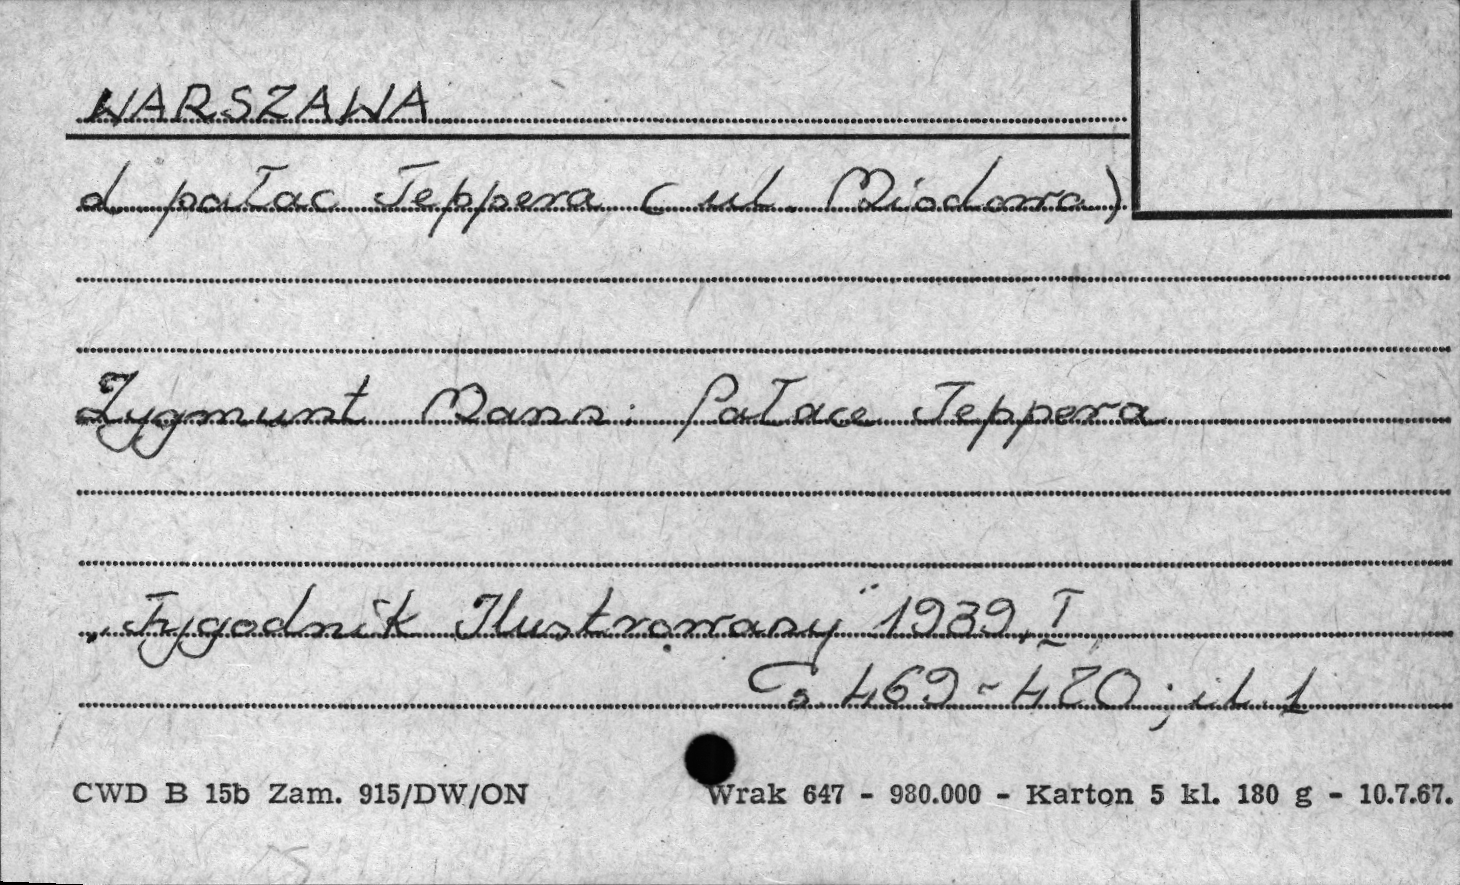 WARSZAWA
d. pałac Teppera (ul. Miodowa)
Zygmunt Mann: Pałace Teppera
„Tygodnik Ilustrowany" 1939, I
s. 469-470; il. 1
CWD B 15b Zam. 915/DW/ON Wrak 647 - 980.000 - Karton 5 kl. 180 g - 10.7.67.